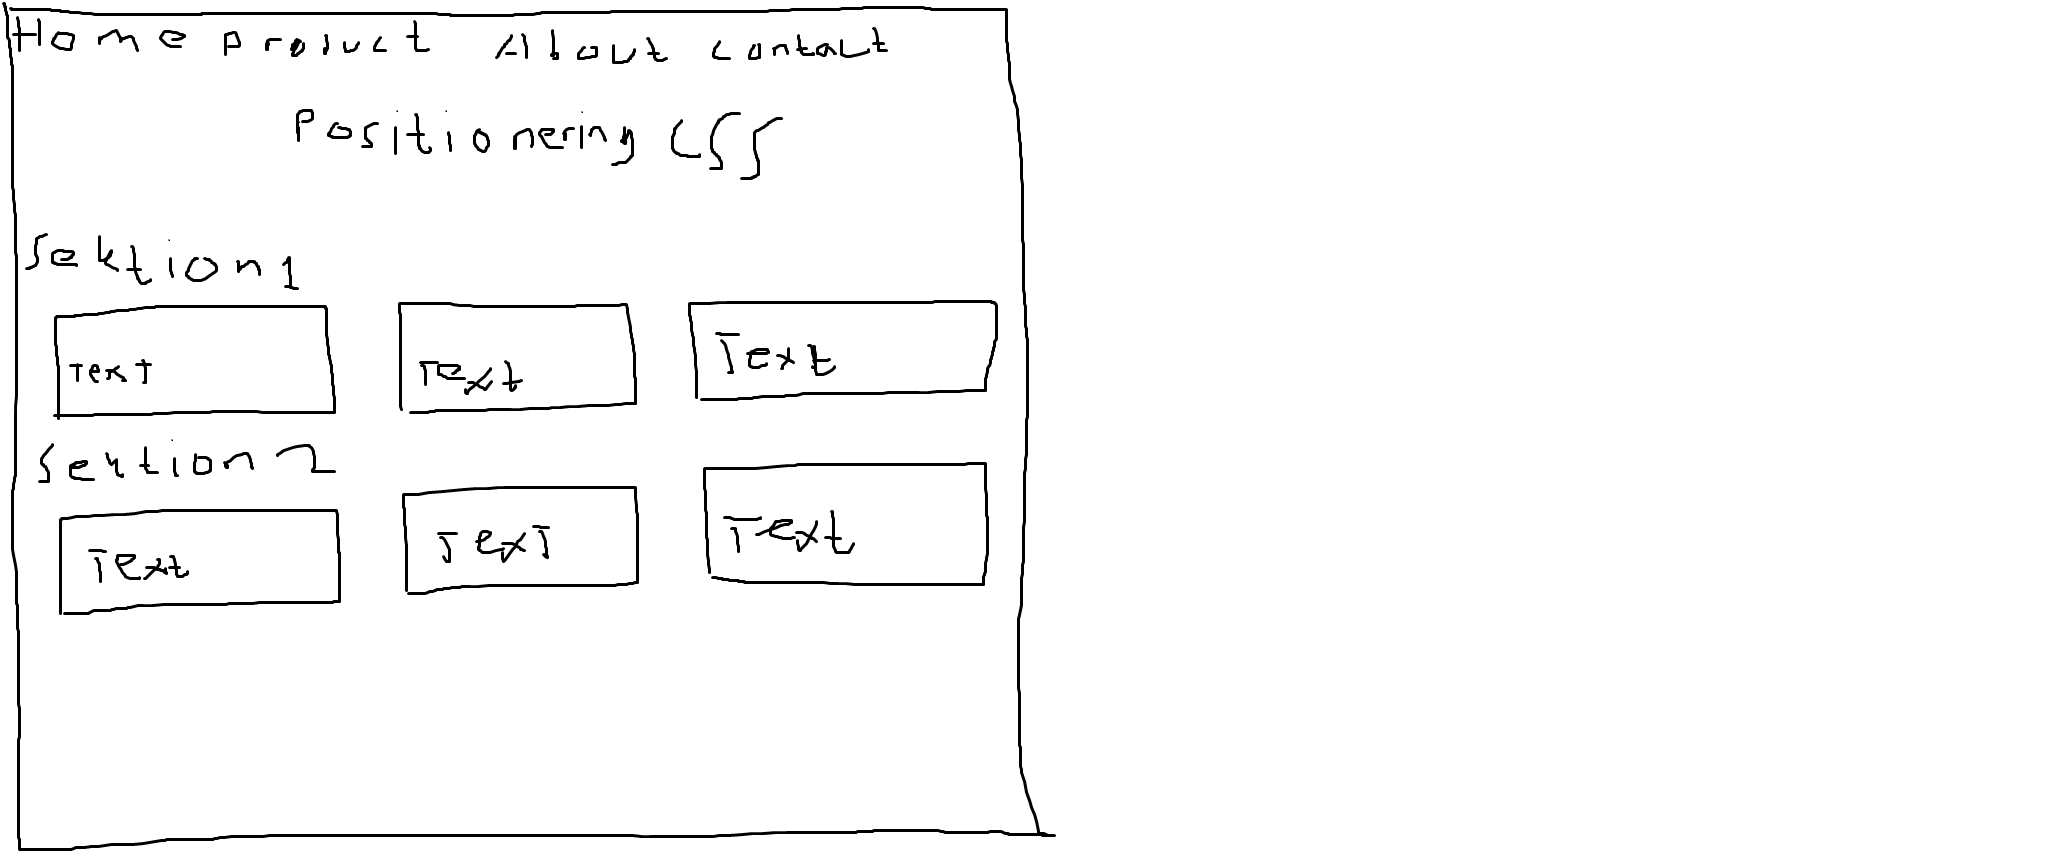 Home product About contact
Positionering CSS
Sektion 1
Text Text Text
Sektion 2
Text Text Text